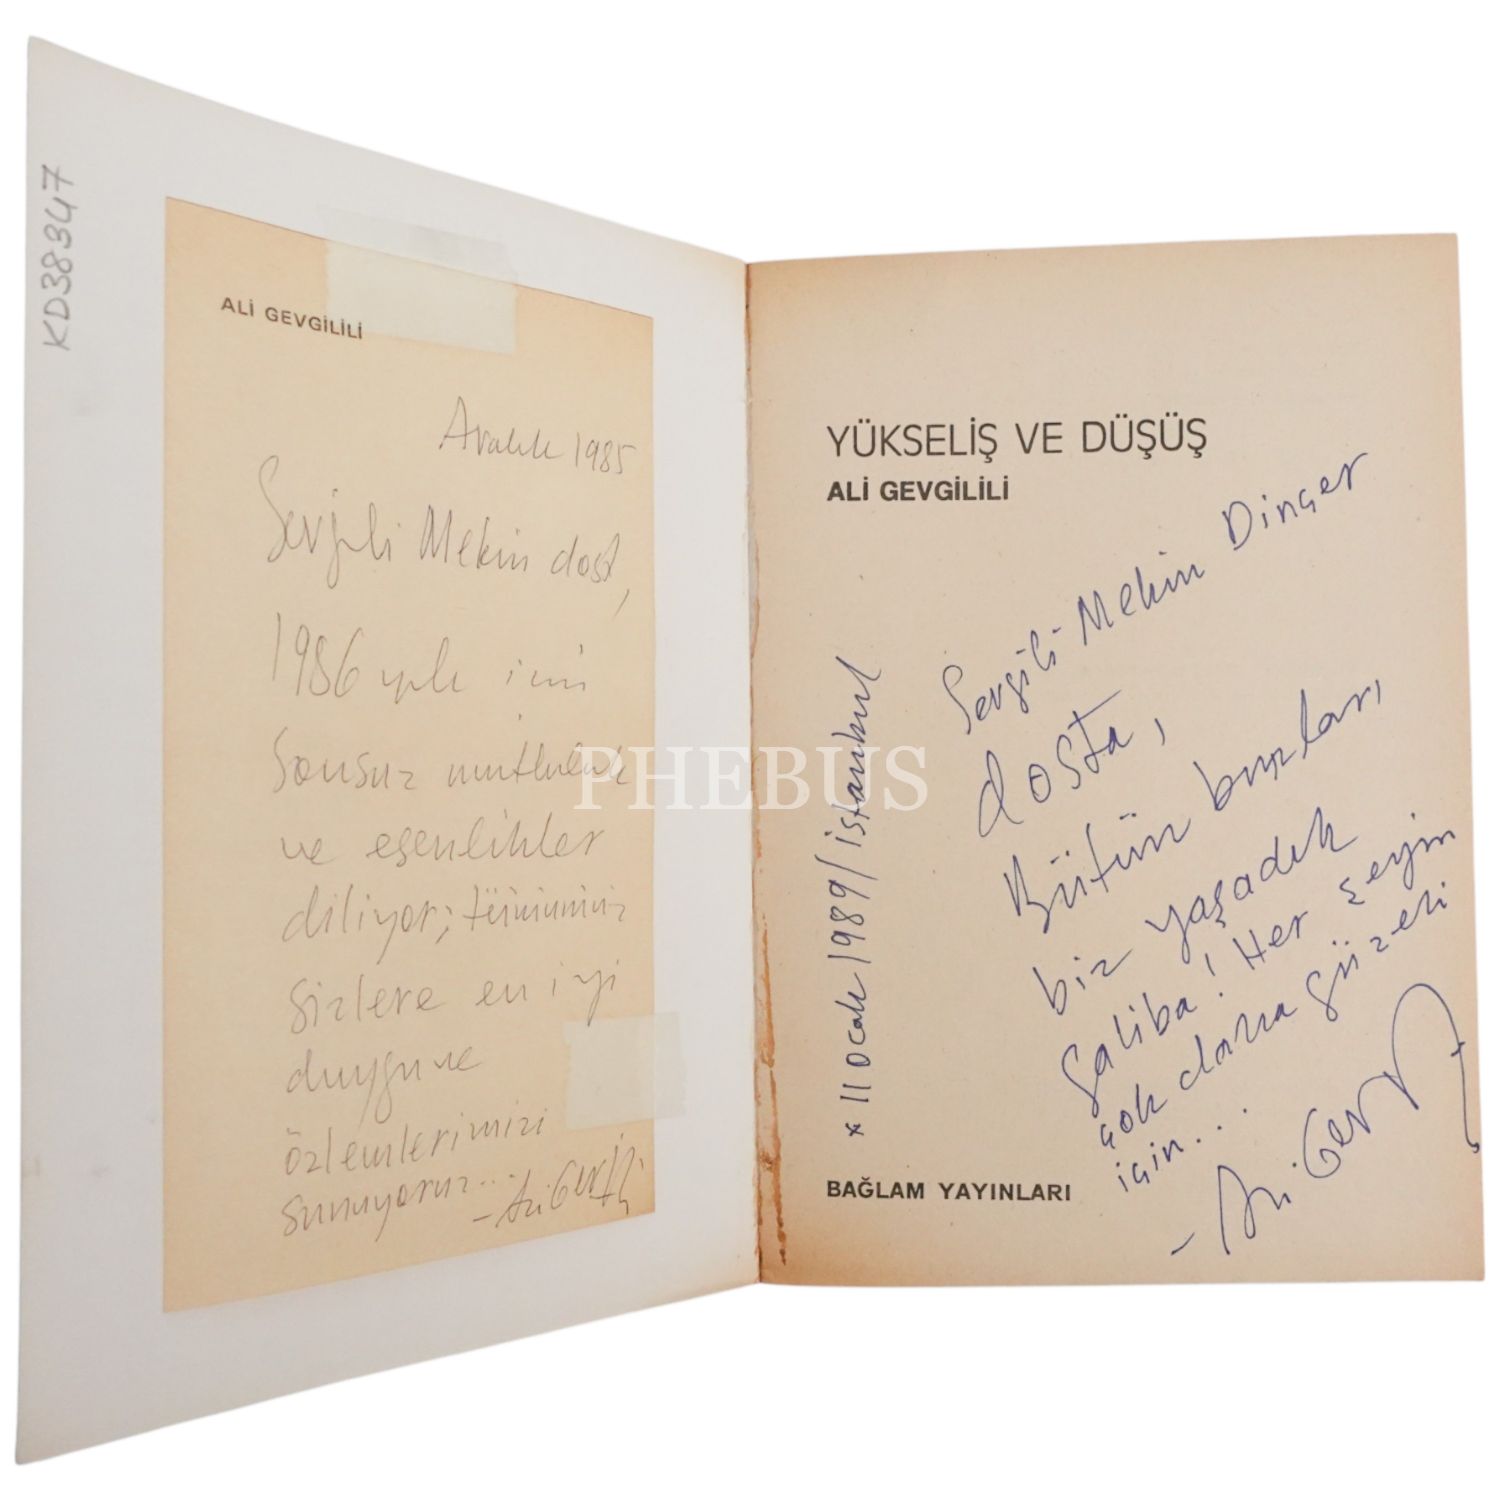 KD38347
ALİ GEVGİLİLİ
Aralık 1985
Sevgili Mekin dost,
1986 yılı için
sonsuz mutluluk
ve esenlikler
diliyor; tümümüz
sizlere en iyi
duygu ve
özlemlerimizi
sunuyoruz...
- Ali Gevgilili
PHEBUS
YÜKSELİŞ VE DÜŞÜŞ
ALİ GEVGİLİLİ
Sevgili Mekin Dinçer
dosta,
Bütün bunları
biz yaşadık
galiba! Her şeyin
çok daha güzeli
için...
- Ali Gev
* 11 Ocak 1989/İstanbul
BAĞLAM YAYINLARI